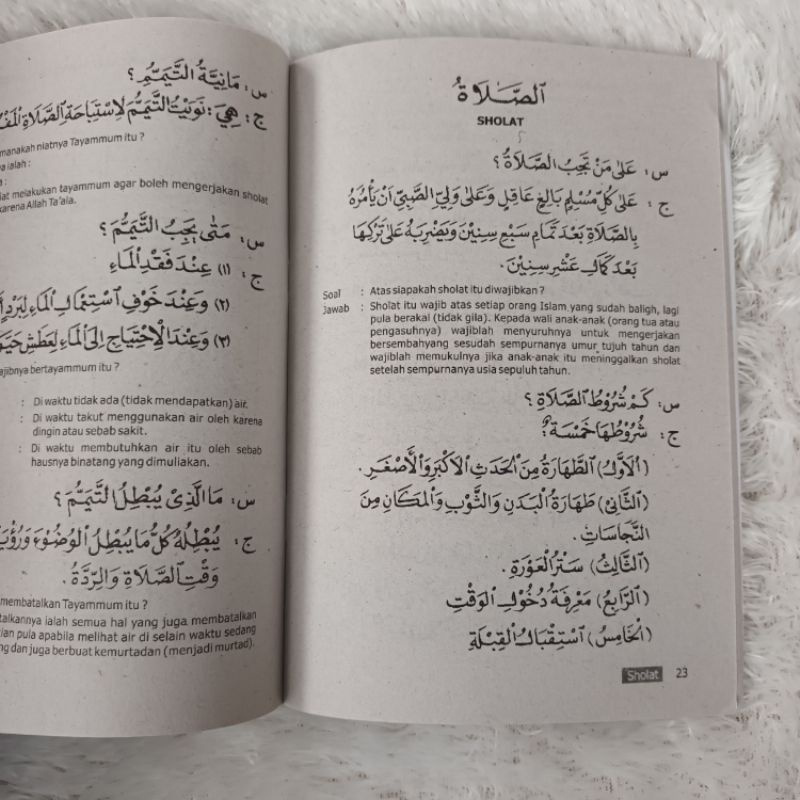 س: مَانِيَّةُ التَّيَمُّمِ؟
ج: هِيَ: نَوَيْتُ التَّيَمُّمَ لِاسْتِبَاحَةِ الصَّلَاةِ
manakah niatnya Tayammum itu ?
ya ialah :
lat melakukan tayammum agar boleh mengerjakan sholat
karena Allah Ta'ala.
س: مَتٰى يَجِبُ التَّيَمُّمُ؟
ج: (١) عِنْدَ فَقْدِ الْمَاءِ
(٢) وَعِنْدَ خَوْفِ اسْتِعْمَالِ الْمَاءِ لِبَرْدٍ
(٣) وَعِنْدَ الْاِحْتِيَاجِ اِلَى الْمَاءِ لِعَطَشِ
ajibnya bertayammum itu ?
: Di waktu tidak ada (tidak mendapatkan) air.
: Di waktu takut menggunakan air oleh karena
dingin atau sebab sakit.
: Di waktu membutuhkan air itu oleh sebab
hausnya binatang yang dimuliakan.
س: مَا الَّذِيْ يُبْطِلُ التَّيَمُّمَ؟
ج: يُبْطِلُهُ كُلُّ مَا يُبْطِلُ الْوُضُوْءَ
وَقْتِ الصَّلَاةِ وَالرِّدَّةُ.
membatalkan Tayammum itu ?
talkannya ialah semua hal yang juga membatalkan
ian pula apabila melihat air di selain waktu sedang
ng dan juga berbuat kemurtadan (menjadi murtad).
الصَّلَاةُ
SHOLAT
س: عَلٰى مَنْ تَجِبُ الصَّلَاةُ؟
ج: عَلٰى كُلِّ مُسْلِمٍ بَالِغٍ عَاقِلٍ وَعَلٰى وَلِيِّ الصَّبِيِّ اَنْ يَأْمُرَهُ
بِالصَّلَاةِ بَعْدَ تَمَامِ سَبْعِ سِنِيْنَ وَيَضْرِبَهُ عَلٰى تَرْكِهَا
بَعْدَ كَمَالِ عَشْرِ سِنِيْنَ.
Soal : Atas siapakah sholat itu diwajibkan ?
Jawab : Sholat itu wajib atas setiap orang Islam yang sudah baligh, lagi
pula berakal (tidak gila). Kepada wali anak-anak (orang tua atau
pengasuhnya) wajiblah menyuruhnya untuk mengerjakan
bersembahyang sesudah sempurnanya umur tujuh tahun dan
wajiblah memukulnya jika anak-anak itu meninggalkan sholat
setelah sempurnanya usia sepuluh tahun.
س: كَمْ شُرُوْطُ الصَّلَاةِ؟
ج: شُرُوْطُهَا خَمْسَةٌ:
(الْاَوَّلُ) الطَّهَارَةُ مِنَ الْحَدَثِ الْاَكْبَرِ وَالْاَصْغَرِ.
(الثَّانِيْ) طَهَارَةُ الْبَدَنِ وَالثَّوْبِ وَالْمَكَانِ مِنَ
النَّجَاسَاتِ.
(الثَّالِثُ) سَتْرُ الْعَوْرَةِ.
(الرَّابِعُ) مَعْرِفَةُ دُخُوْلِ الْوَقْتِ
(الْخَامِسُ) اسْتِقْبَالُ الْقِبْلَةِ
Sholat 23